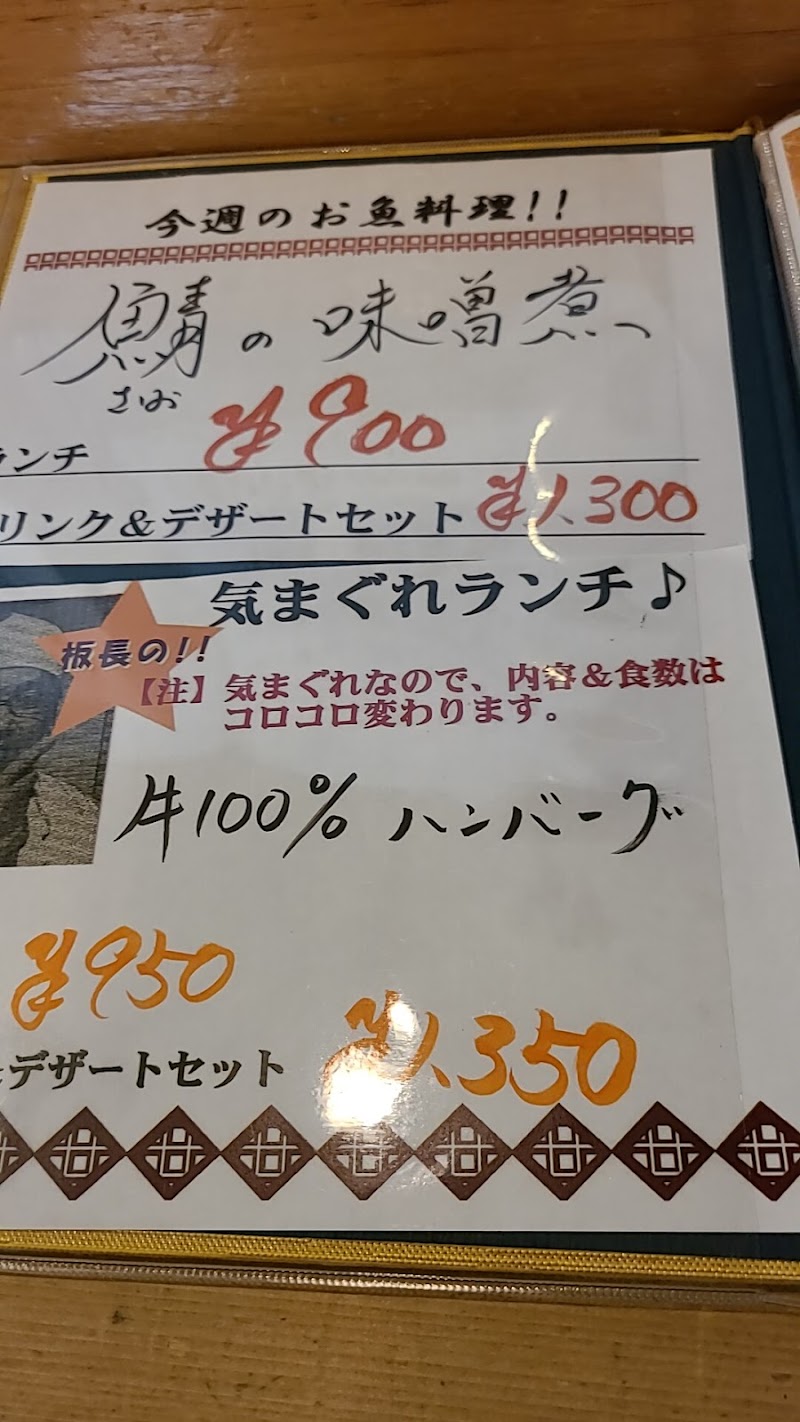 今週のお魚料理!!
鯖の味噌煮
さば
ランチ ¥900
リンク&デザートセット ¥1,300
気まぐれランチ♪
板長の!!
【注】気まぐれなので、内容&食数は
コロコロ変わります。
牛100% ハンバーグ
¥950
&デザートセット ¥1,350